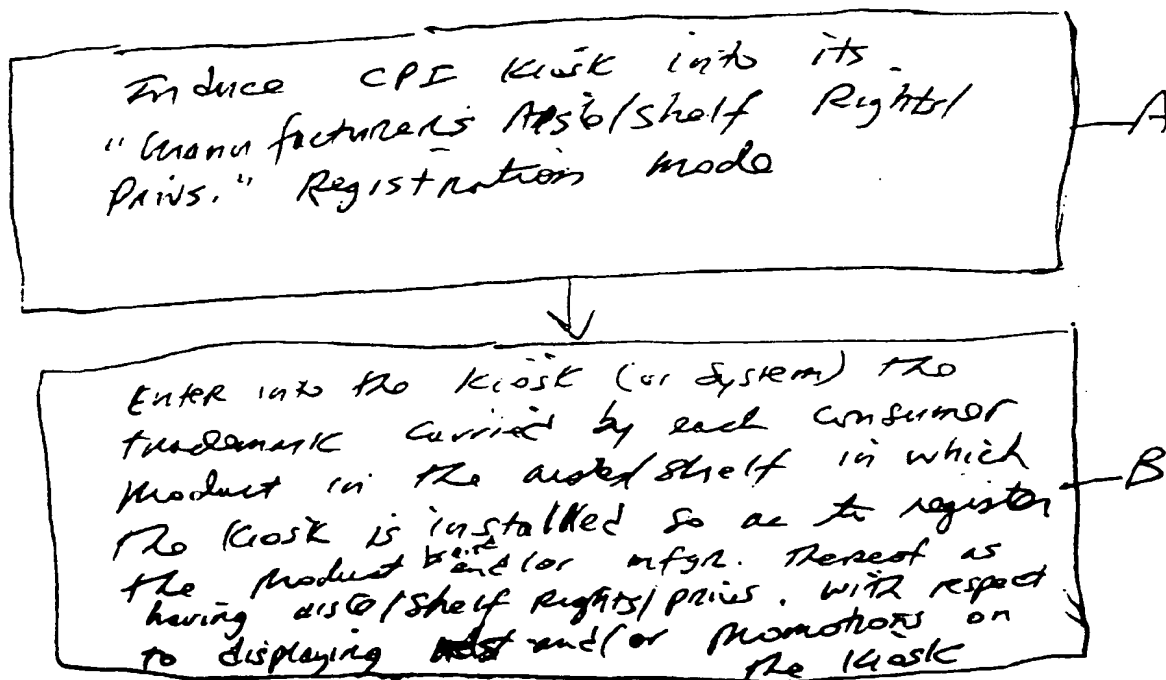 Induce CPI Kiosk into its
"Manufacturer's Aisle/Shelf Rights/
Privs." Registration mode
A
Enter into the Kiosk (or System) the
trademark carried by each consumer
product in the aisle/shelf in which
the Kiosk is installed so as to register
the product brand and/or mfgr. thereof as
having aisle/shelf Rights/privs. with respect
to displaying and/or promotions on
the Kiosk
B